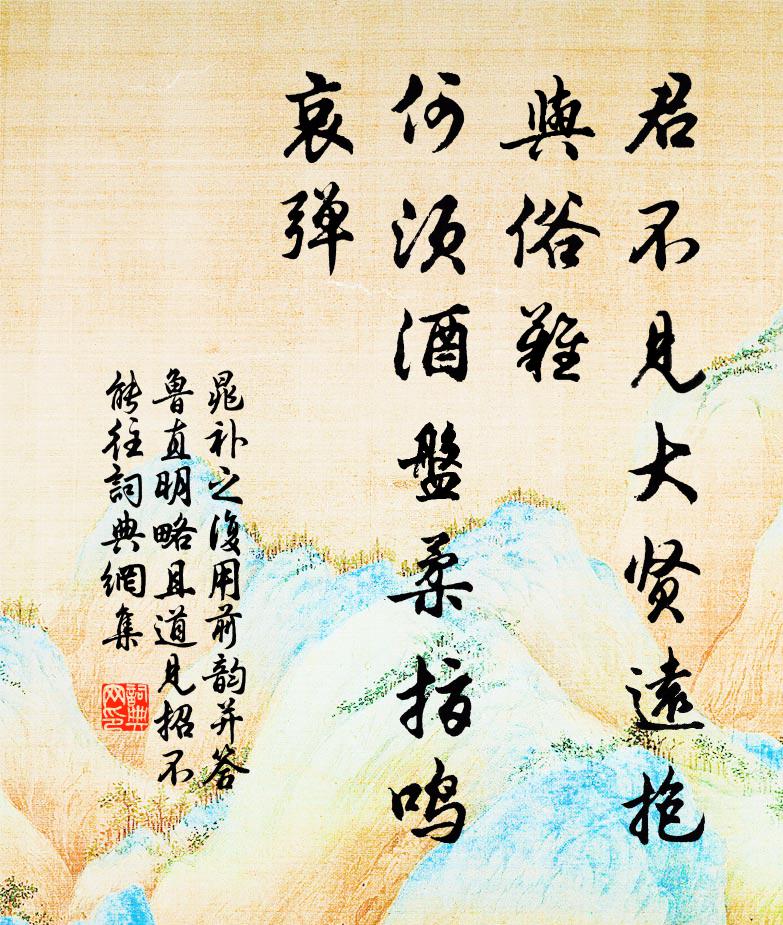 君不见大贤遠抱
與俗難
何须酒盤柔指鸣
哀弹
晁补之復用前韵并答
鲁直明略且道见招不
能往詞典網集
詞典
网印